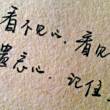 看不见心，看见
遗忘心，记住